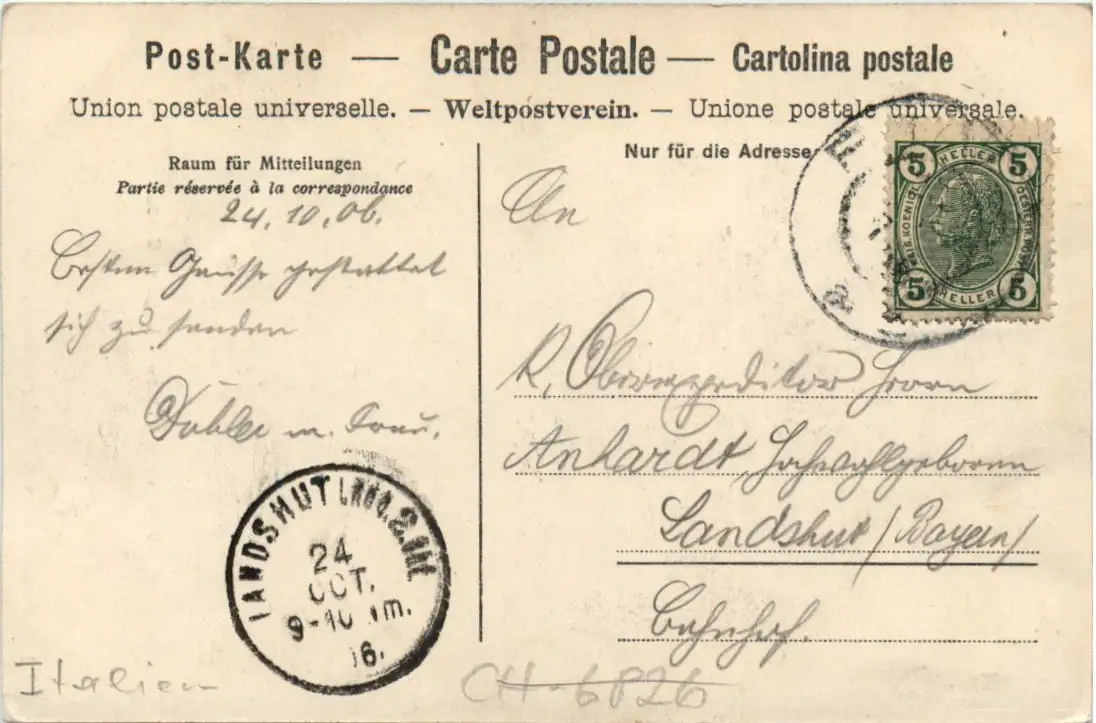 Post-Karte — Carte Postale — Cartolina postale
Union postale universelle. — Weltpostverein. — Unione postale universale.
Raum für Mitteilungen
Partie réservée à la correspondance
24. 10. 06.
Besten Grüsse gestattet
sich zu senden
m. Frau.
Nur für die Adresse
5 HELLER 5
5 HELLER 5
An
K. Oberexpeditor Herrn
Anhardt, Hochwohlgeboren
Landshut / Bayern /
Bahnhof.
LANDSHUT
24
OCT.
9-10
6.
Italien
CH-6826